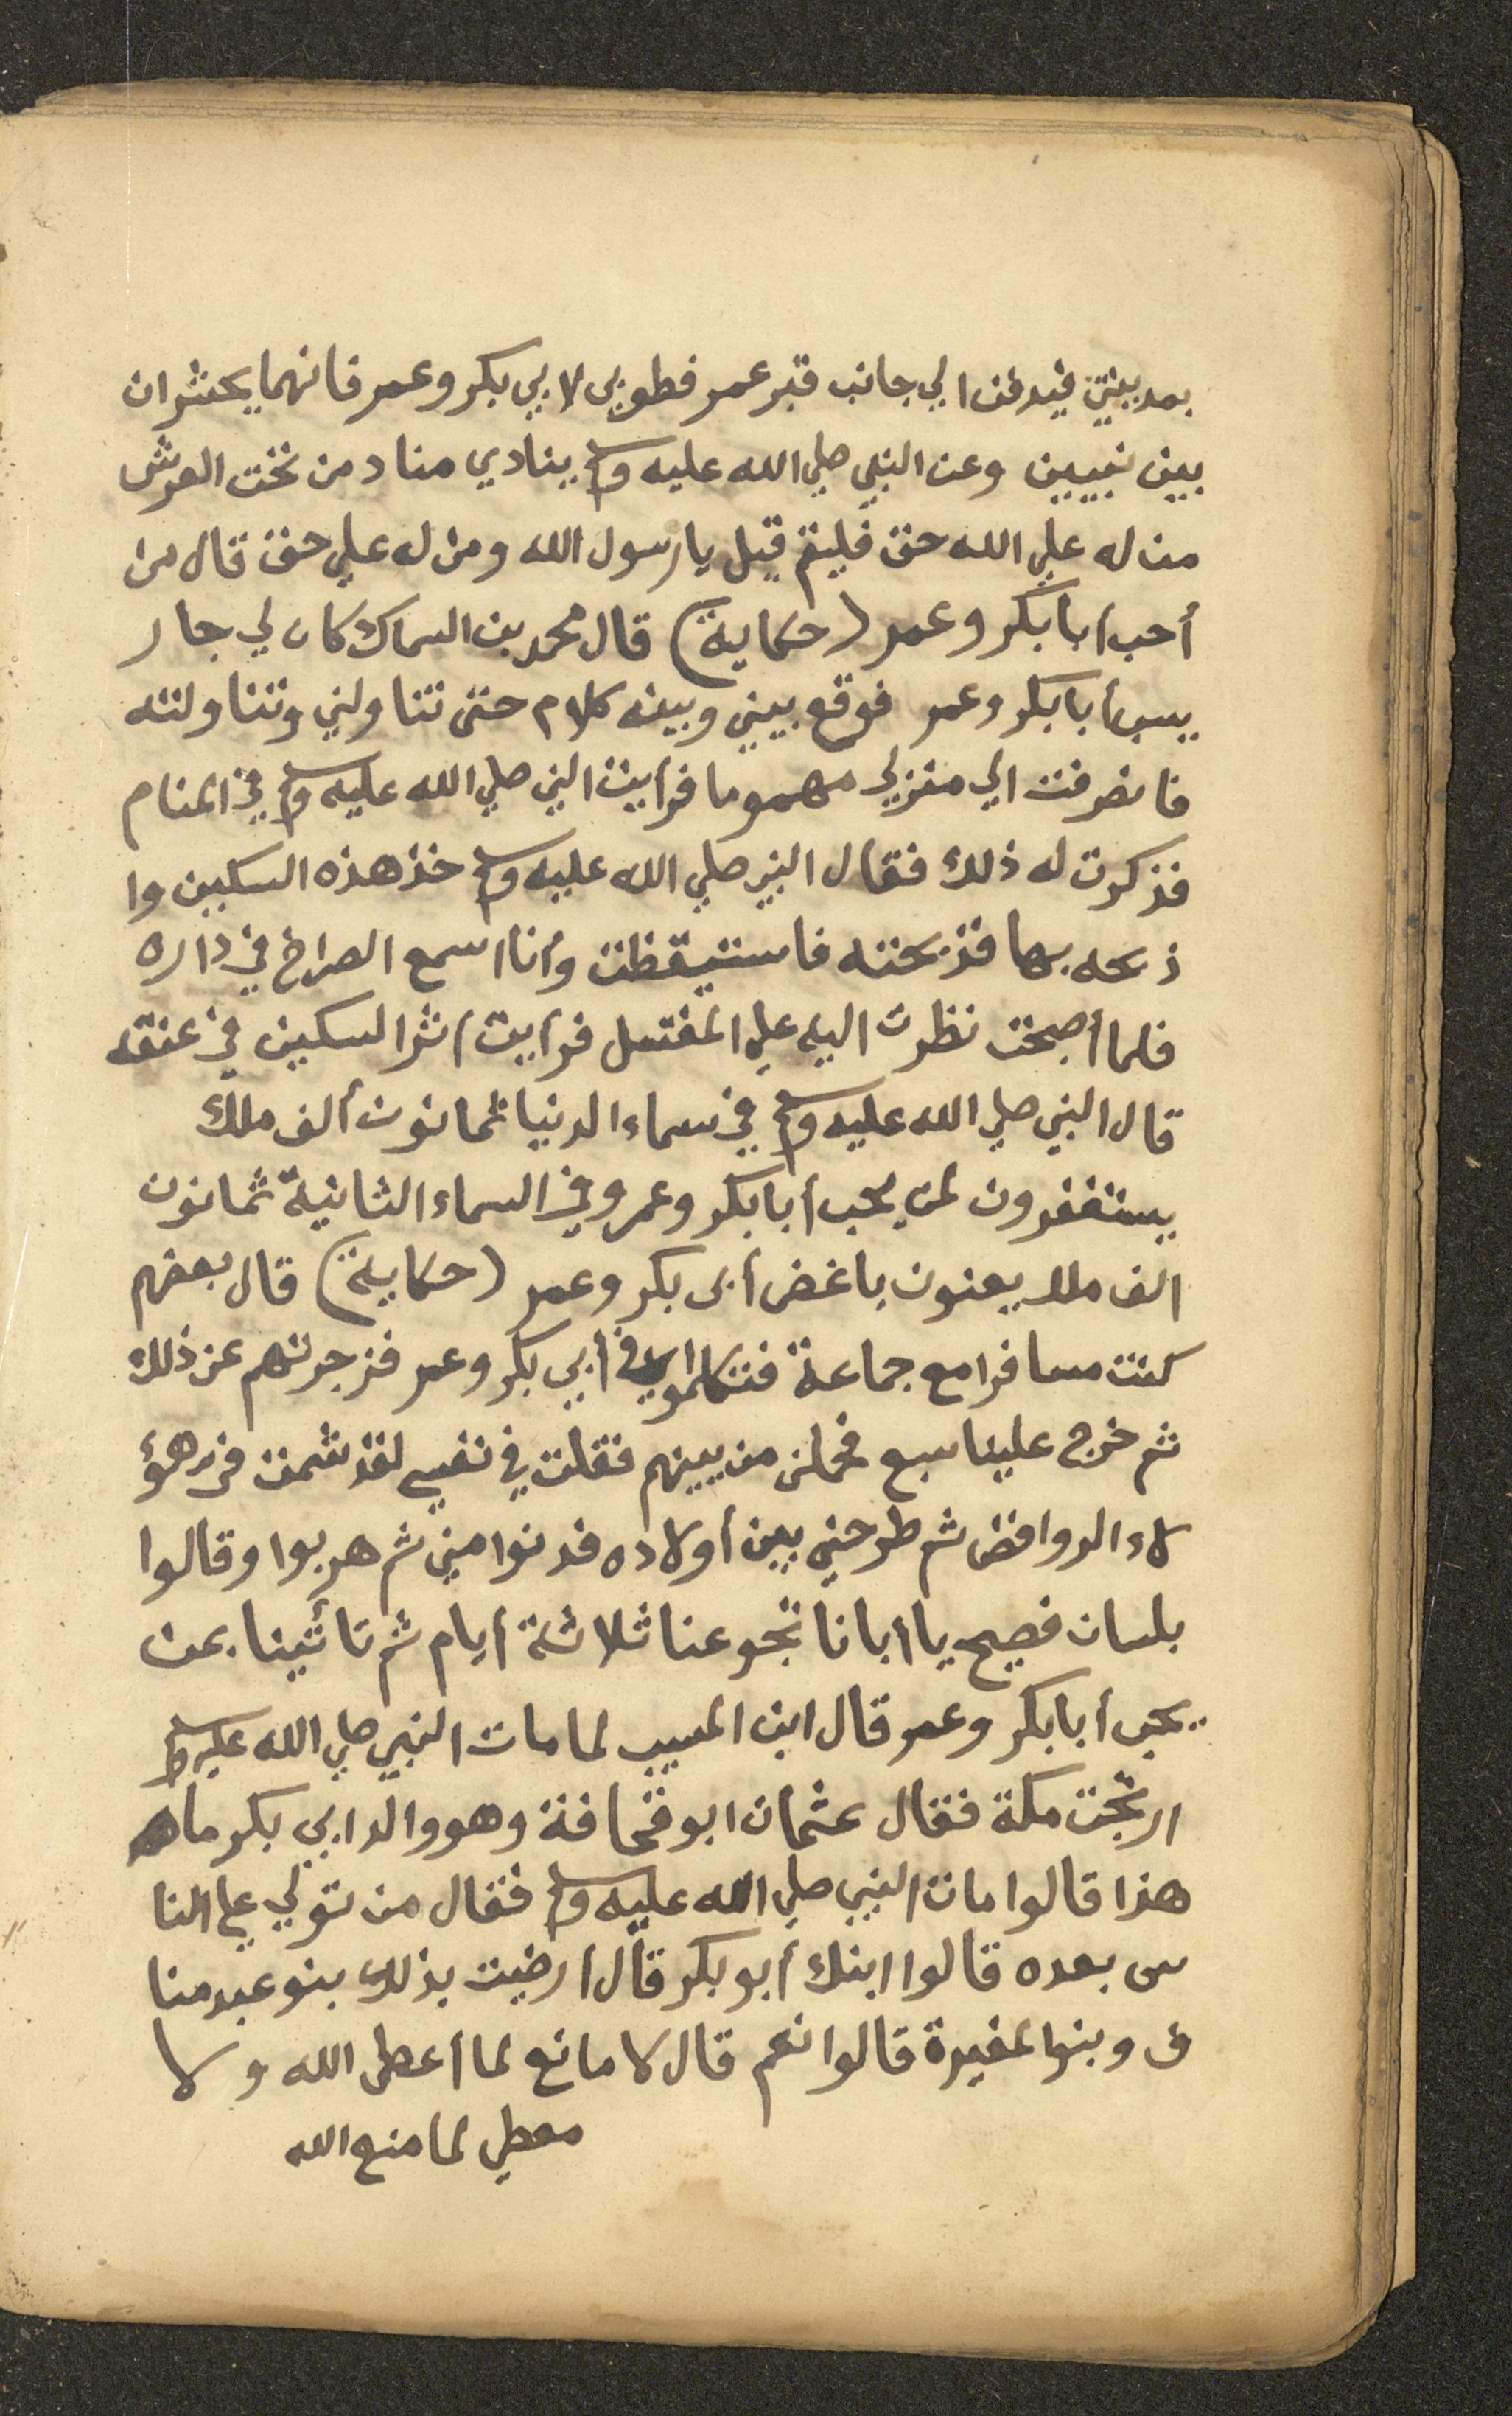 بمدينتي فيدفن الي جانب قبر عمر فطوبى لابي بكر وعمر فانهما يحشران
بين نبيين وعن النبي صلي الله عليه وسلم ينادي مناد من تحت العرش
من له علي الله حق فليقم قيل يا رسول الله ومن له علي حق قال من
أحب أبا بكر وعمر (حكاية) قال محمد بن السماك كان لي جار
يسب أبا بكر وعمر فوقع بيني وبينه كلام حتى تناولني وتناولته
فانصرفت الي منزلي مهموما فرأيت النبي صلي الله عليه وسلم في المنام
فذكرت له ذلك فقال النبي صلي الله عليه وسلم خذ هذه السكين وا
ذبحه بها فذبحته فاستيقظت وأنا اسمع الصراخ في داره
فلما أصبحت نظرت اليه علي المغتسل فرأيت أثر السكين في عنقه
قال النبي صلي الله عليه وسلم في سماء الدنيا ثمانون ألف ملك
يستغفرون لمن يحب أبا بكر وعمر وفي السماء الثانية ثمانون
الف ملك يعنون باغض أبى بكر وعمر (حكاية) قال بعضهم
كنت مسافرا مع جماعة فتكلموا في أبي بكر وعمر فزجرتهم عن ذلك
ثم خرج علينا سبع فحملني من بينهم فقلت في نفسي لقد شمت في هؤ
لاء الروافض ثم طرحني بين أولاده فدنوا مني ثم هربوا وقالوا
بلسان فصيح يا أبانا تجوعنا ثلاثة أيام ثم تأتينا بمن
يحب أبا بكر وعمر قال ابن المسيب لما مات النبي صلي الله عليه وسلم
ارتجت مكة فقال عثمان ابو قحافة وهو والد ابي بكر ما
هذا قالوا مات النبي صلي الله عليه وسلم فقال من تولي علي النا
س بعده قالوا ابنك أبو بكر قال أرضيت بذلك بنو عبد منا
ف وبنو المغيرة قالوا نعم قال لا مانع لما أعطى الله ولا
معطي لما منع الله